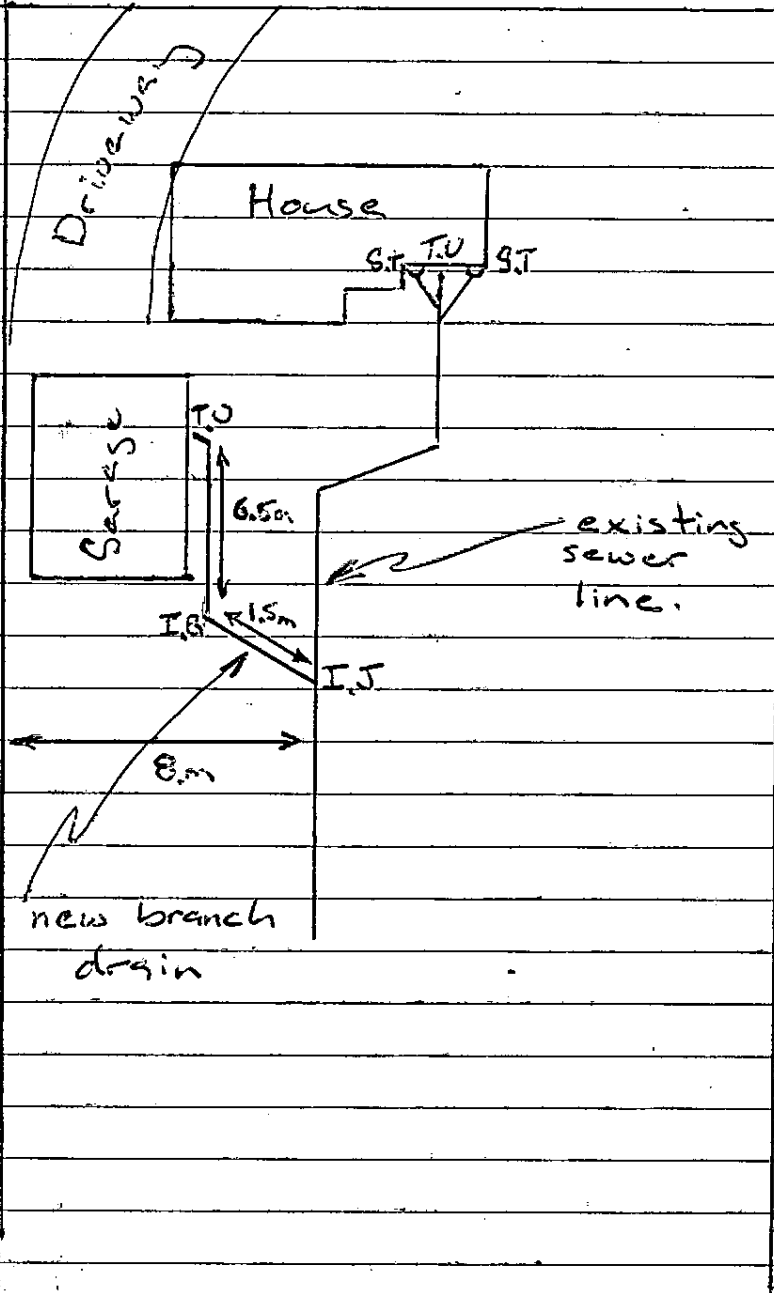 Driveway
House
S.T. T.U S.T
Garage
T.U
6.5m
existing
sewer
line.
I.B
1.5m
I.J
8.m
new branch
drain